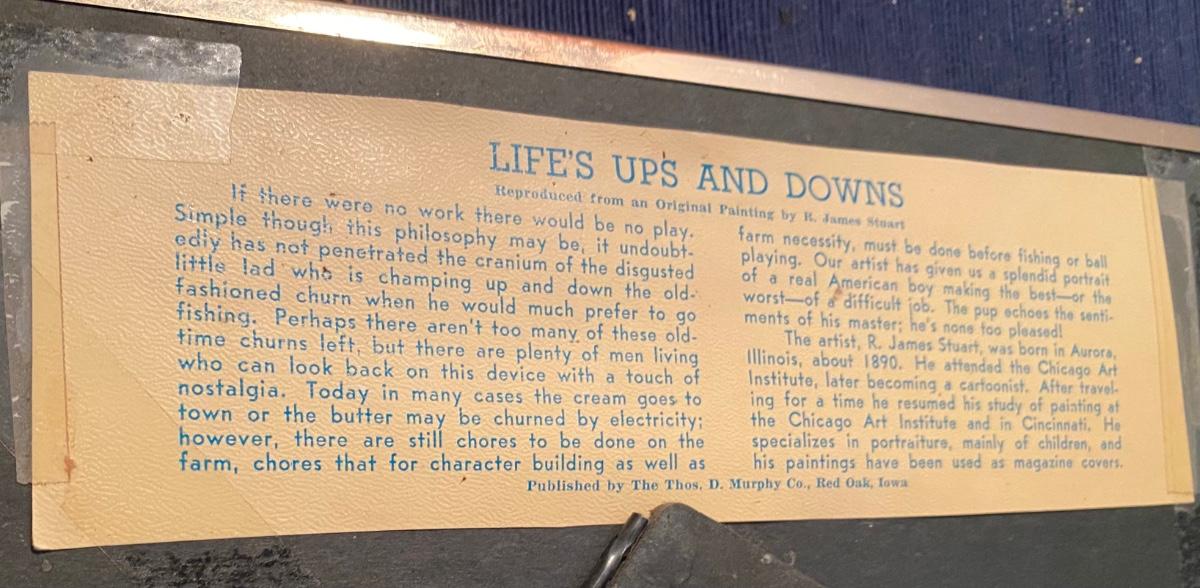 LIFE'S UPS AND DOWNS
Reproduced from an Original Painting by R. James Stuart
If there were no work there would be no play.
Simple though this philosophy may be, it undoubt-
edly has not penetrated the cranium of the disgusted
little lad who is champing up and down the old-
fashioned churn when he would much prefer to go
fishing. Perhaps there aren't too many of these old-
time churns left, but there are plenty of men living
who can look back on this device with a touch of
nostalgia. Today in many cases the cream goes to
town or the butter may be churned by electricity;
however, there are still chores to be done on the
farm, chores that for character building as well as
farm necessity, must be done before fishing or ball
playing. Our artist has given us a splendid portrait
of a real American boy making the best—or the
worst—of a difficult job. The pup echoes the senti-
ments of his master; he's none too pleased!
The artist, R. James Stuart, was born in Aurora,
Illinois, about 1890. He attended the Chicago Art
Institute, later becoming a cartoonist. After travel-
ing for a time he resumed his study of painting at
the Chicago Art Institute and in Cincinnati. He
specializes in portraiture, mainly of children, and
his paintings have been used as magazine covers.
Published by The Thos. D. Murphy Co., Red Oak, Iowa